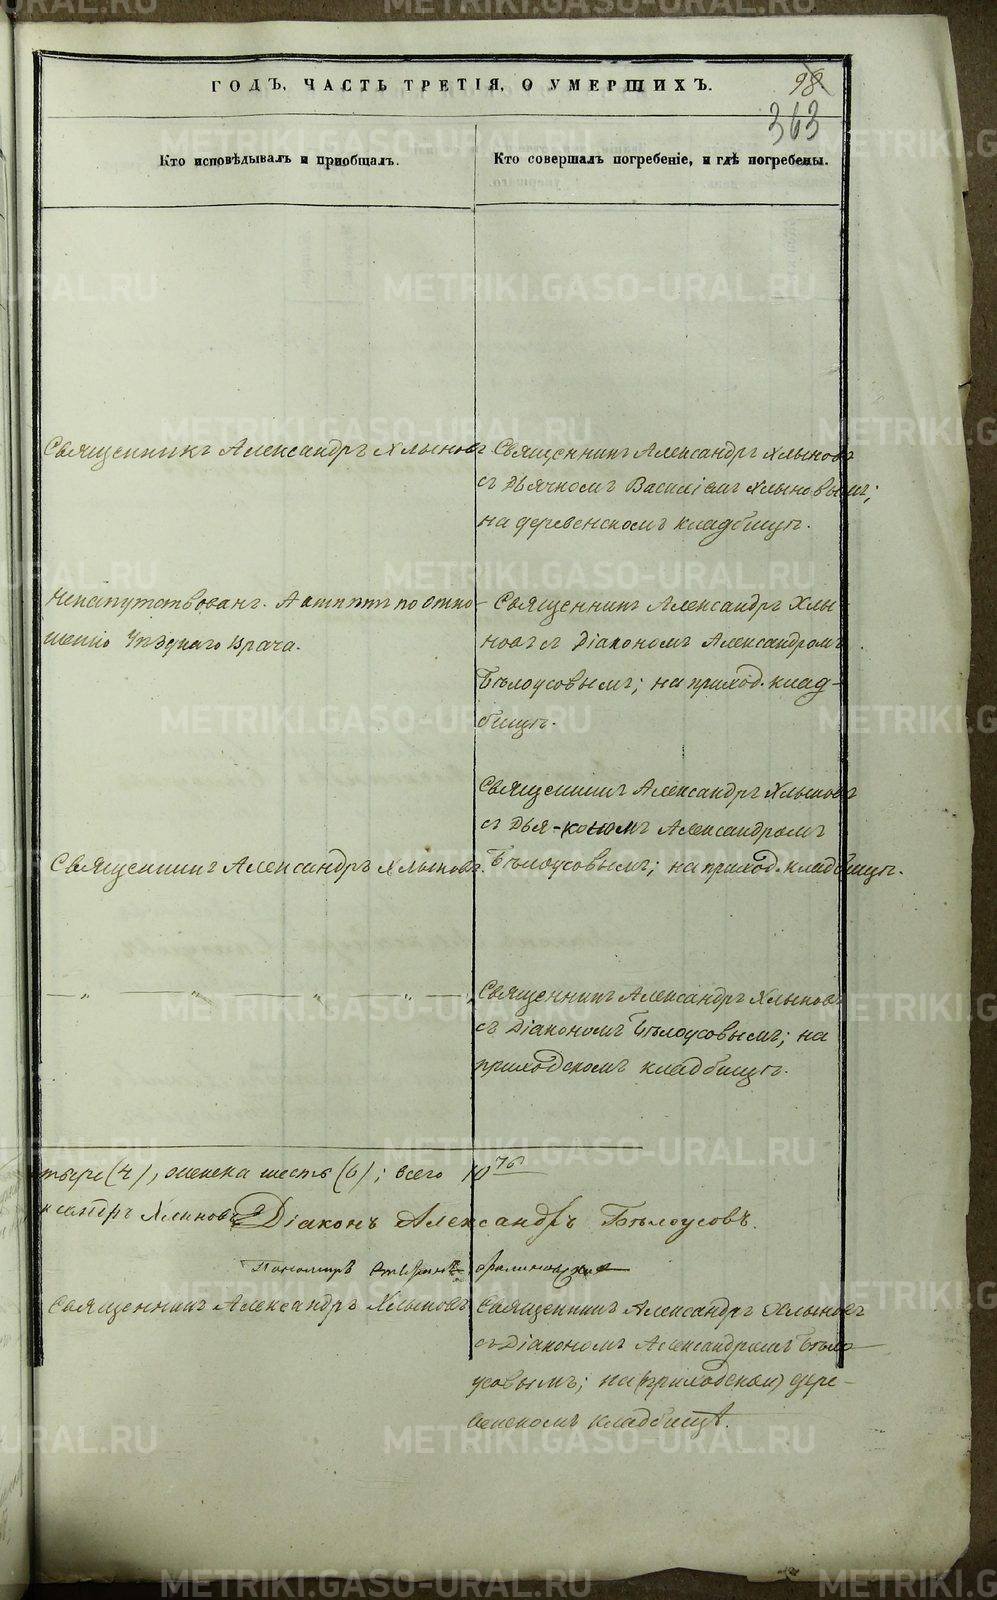 ГОДЪ, ЧАСТЬ ТРЕТІЯ, О УМЕРШИХЪ.
98.
363
Кто исповѣдывалъ и приобщалъ.
Кто совершалъ погребеніе, и гдѣ погребены.
Священникъ Александръ Хлыновъ
Священникъ Александръ Хлыновъ
съ Дьячкомъ Василіемъ Хлыновымъ;
на деревенскомъ кладбищѣ.
Ненапутствованъ. А отпѣтъ по отно-
шенію Уѣзднаго врача.
Священникъ Александръ Хлы-
новъ съ Діакономъ Александромъ
Бѣлоусовымъ; на приход. клад-
бищѣ.
Священникъ Александръ Хлыновъ
Священникъ Александръ Хлыновъ
съ Дья-кономъ Александромъ
Бѣлоусовымъ; на приход. кладбищѣ.
— „ — „ — „ — „ —
Священникъ Александръ Хлыновъ
съ Діакономъ Бѣлоусовымъ; на
приходскомъ кладбищѣ.
тыре (4), женска шесть (6); всего 10
Хлыновъ Діаконъ Александръ Бѣлоусовъ.
Пономарь
Священникъ Александръ Хлыновъ
Священникъ Александръ Хлыновъ
съ Діакономъ Александромъ Бѣло-
усовымъ; на (приходском) дере-
венскомъ кладбищѣ.
METRIKI.GASO-URAL.RU